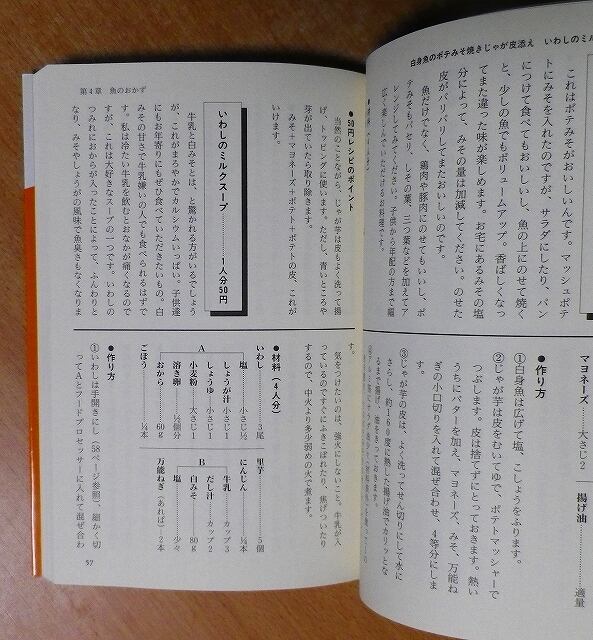 白身魚のポテみそ焼きじゃが皮添え　いわしのミル
これはポテみそがおいしいんです。マッシュポテ
トにみそを入れたのですが、サラダにしたり、パン
につけて食べてもおいしいし、魚の上にのせて焼く
と、少しの魚でもボリュームアップ。香ばしくなっ
てまた違った味が楽しめます。お宅にあるみその塩
分によって、みその量は加減してください。のせた
皮がパリパリしてまたおいしいのです。
魚だけでなく、鶏肉や豚肉にのせてもいいし、ポ
テみそもパセリ、しその葉、三つ葉などを加えてア
レンジしてみてください。子供から年配の方まで幅
広く楽しんでいただけるお料理です。
マヨネーズ……大さじ2
揚げ油……適量
●作り方
①白身魚は広げて塩、こしょうをふります。
②じゃが芋は皮をむいてゆで、ポテトマッシャーで
つぶします。皮は捨てずにとっておきます。熱い
うちにバターを加え、マヨネーズ、みそ、万能ね
ぎの小口切りを入れて混ぜ合わせ、4等分にしま
す。
③じゃが芋の皮は、よく洗ってせん切りにして水に
さらし、約160度に熱した揚げ油でカリッとな
るまで揚げ、油をきっておきます。
第4章　魚のおかず
●50円レシピのポイント
当然のことながら、じゃが芋は皮もよく洗って揚
げ、トッピングに使います。ただし、青いところや
芽が出ていたら取り除きます。
みそ＋マヨネーズ＋ポテト＋ポテトの皮、これが
いけます。
いわしのミルクスープ……1人分50円
牛乳と白みそとは、と驚かれる方がいるでしょう
が、これがまろやかでカルシウムいっぱい。子供達
にもお年寄りにもぜひ食べていただきたいもの。白
みその甘さで牛乳嫌いの人でも食べられるはずで
す。私は冷たい牛乳を飲むとおなかが痛くなるので
すが、これは大好きなスープの一つです。いわしの
つみれにおからが入ったことによって、ふんわりと
なり、みそやしょうがの風味で魚臭さもなくなりま
す。
気をつけたいのは、強火にしないこと。牛乳が入
っているのですぐにふきこぼれたり、焦げついたり
するので、中火より多少弱めの火で煮ます。
●材料（4人分）
いわし……3尾
A
塩……小さじ½
しょうが汁……小さじ1
しょうゆ……小さじ1
小麦粉……大さじ1
溶き卵……½個分
おから……60g
ごぼう……¼本
里芋……5個
にんじん……¼本
B
牛乳……カップ3
だし汁……カップ2
白みそ……80g
塩……少々
万能ねぎ（あれば）……2本
●作り方
①いわしは手開きにし（58ページ参照）、細かく切
ってAとフードプロセッサーに入れて混ぜ合わ
57